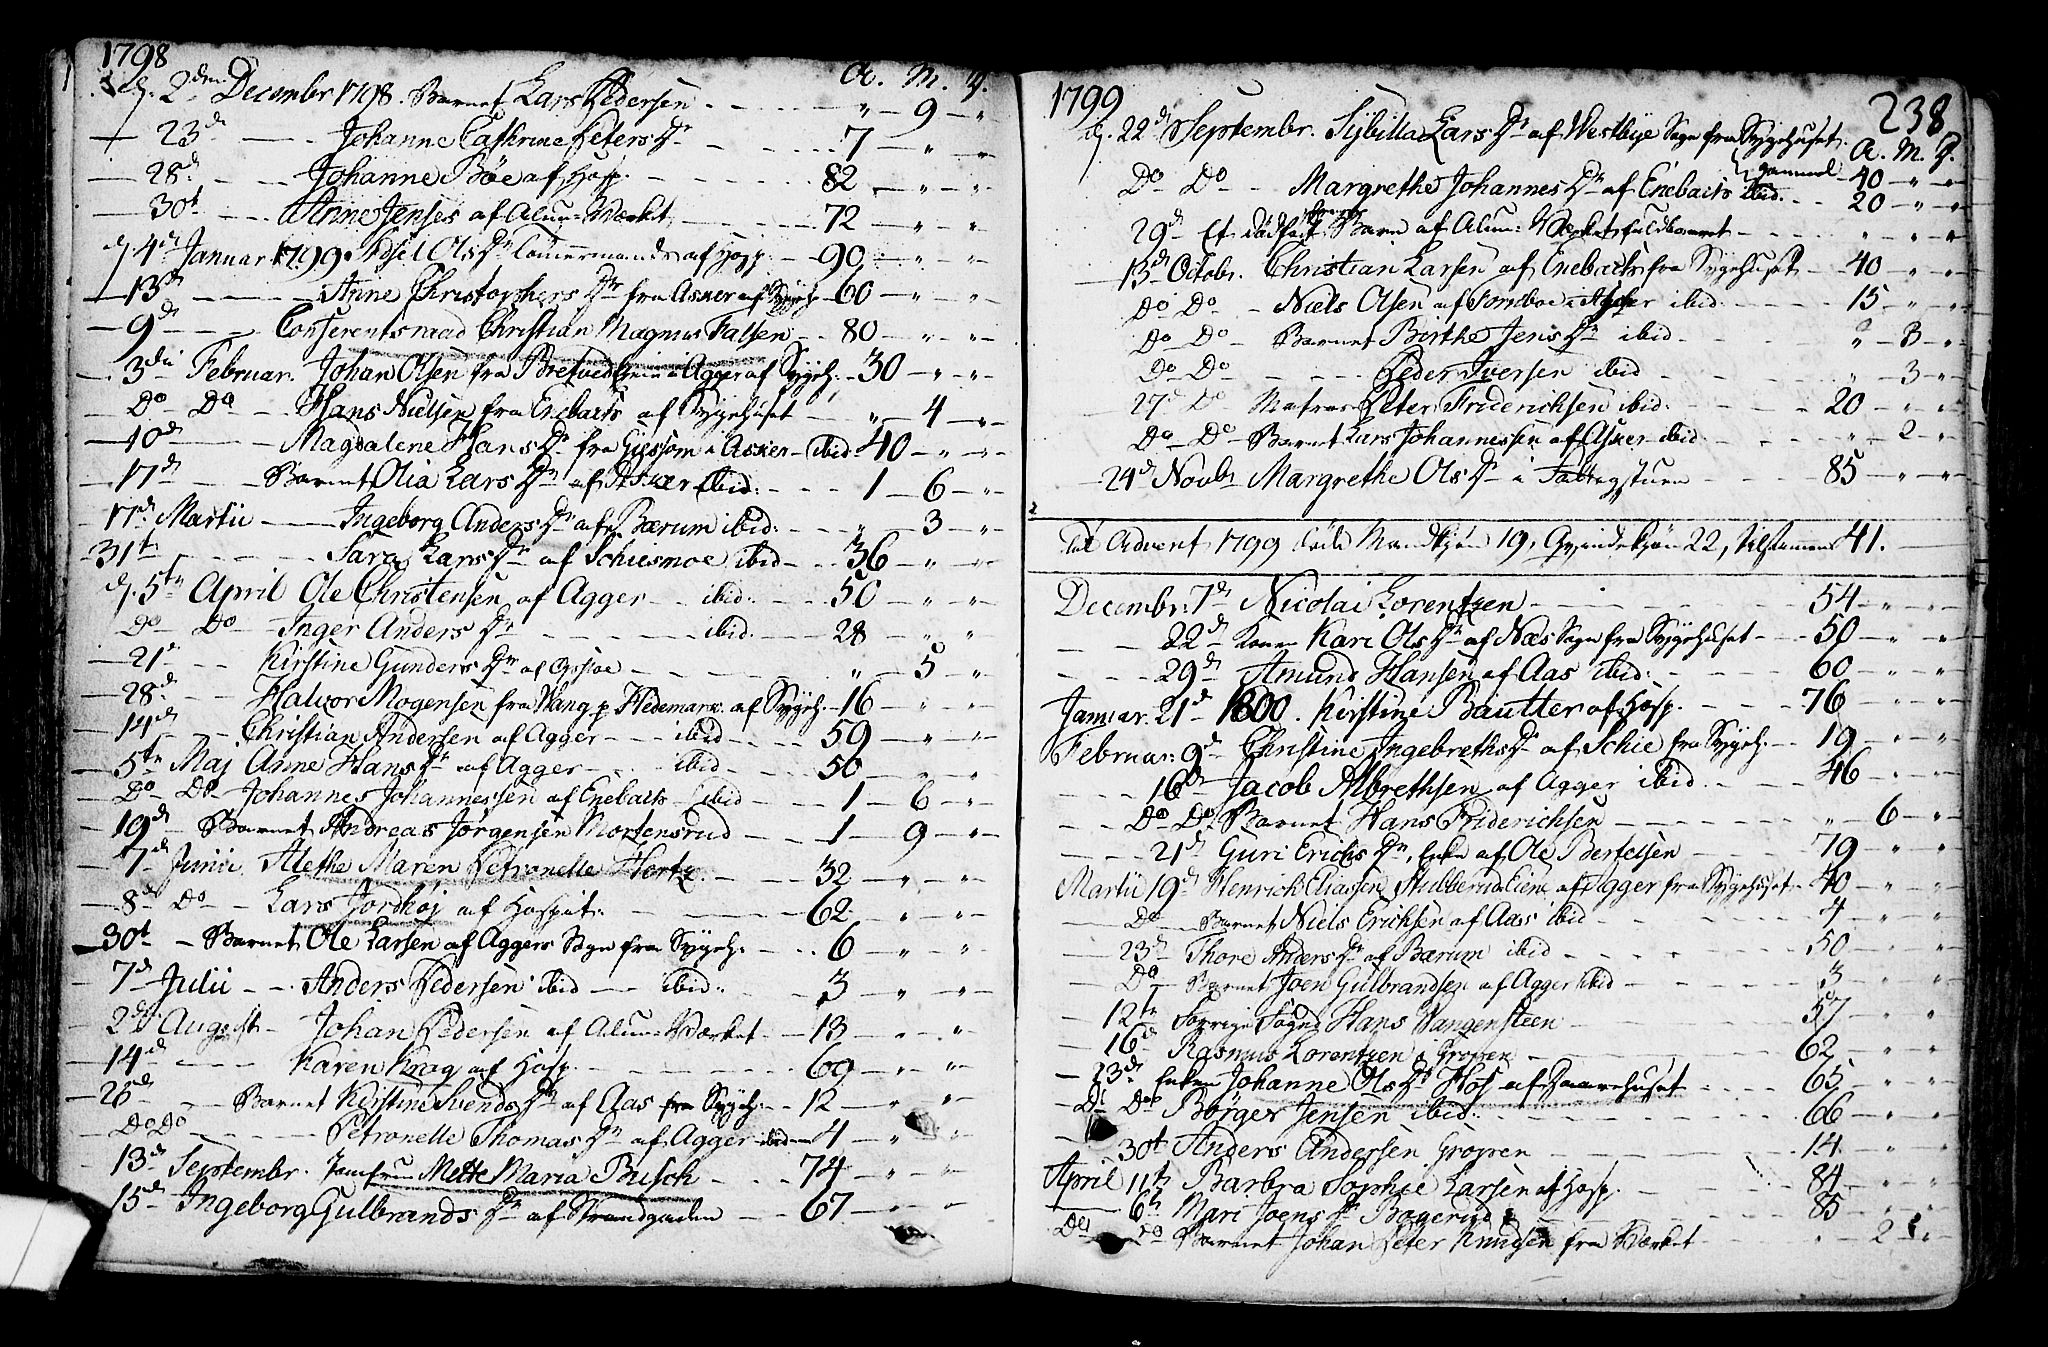 1798
A. M. D.
d. 2den Decembr 1798. Barnet Lars Pedersen - - - " - 9 - "
23de - Johanne Cathrine Peters Dr - - - 7 - " - "
28d - Johanne Böe af Hosp. - - - 82 - " - "
30t - Anne Jenses af Alun-Værket - - - 72 - " - "
d. 4de Januar 1799. Ols Dr af Hosp. - 90 - " - "
13de - Anne Christophers Dr fra Asker af Sygeh. - 60 - " - "
9de - Conferentsraad Christian Magnus Falsen - 80 - " - "
3die Februar. Johan Olsen fra i Agger af Sygeh. - 30 - " - "
Do Do - Hans Nielsen fra Enebaks af Sygehuset - " - 4 - "
10de - Magdalene Hans Dr fra i Asker - ibid. 40 - " - "
17de - Barnet Olia Lars Dr af Asker ibid. - 1 - 6 - "
17de Martii - Ingeborg Anders Dr af Bærum ibid. - " - 3 - "
31te - Sara Lars Dr af Schiesmoe ibid - 36 - " - "
d. 5te April Ole Christensen af Agger - ibid. - 50 - " - "
Do Do - Inger Anders Dr - ibid. - 28 " "
21e - Kirstine Gunders Dr af Opsloe - " - 5 - "
28d - Halvor Mogensen fra Wang p. Hedemark. af Sygeh. - 16 - " - "
14de - Christian Andersen af Agger - ibid - 59 - " - "
5te Maj Anne Hans Dr af Agger - ibid - 50 - " - "
Do Do - Johannes Johannessen af Enebaks - ibid - 1 - 6 - "
19de - Barnet Andreas Jørgensen Mortensrud - 1 - 9 - "
7de Junii Alethe Maren Petronelle Hertz. - 32 - " - "
8de Do - Lars Jordhøj af Hospit. - 62 - " - "
30t - Barnet Ole Larsen af Aggers Sogn fra Sygeh. - 6 - " "
7de Julii - Anders Pedersen ibid - ibid. - 3 - " - "
2den August - Johan Pedersen af Alun-Værket - 13 - " - "
14de - Karen Krag af Hosp. - 69 - " - "
25de - Barnet Kirstine Svends Dr af Aas fra Sygeh. - 12 - " - "
Do Do - Petronelle Thomas Dr af Agger ibid - 4 - " - "
13de Septembr. Jomfru Mette Maria Busch - 74 - " - "
15de - Ingeborg Gulbrands Dr af Strandgaden - 67 - " - "
1799
238
d. 22de Septembr. Sybilla Lars Dr af Westbye Sogn fra Sygehuset.
A. M. D.
gammel 40 - " - "
Do Do - Margrethe Johannes Dr af Enebaks ibid. - 20 - " - "
29de - Et dødfødt Barn af Alun-Værket fuldbaaret - " " "
13de Octobr. Christian Larsen af Enebaks fra Sygehuset - 40 - " - "
Do Do - Niels Olsen af i Asker ibid. - 15 - " - "
Do Do - Barnet Birthe Jens Dr ibid - " - 3 - "
Do Do - Peder Iversen ibid - " - 3 - "
27d Do Matros Peter Friderichsen ibid. - 20 - " - "
Do Do - Barnet Lars Johannessen af Asker ibid - " - 2 - "
24de Novbr Margrethe Ols Dr i Fattigstuen - 85 - " - "
Til Advent 1799 døde Mandkjøn 19, Qvindekjøn 22, tilsammen 41.
Decembr: 7de Nicolai Lorentzen - 54 - " - "
22de Kari Ols Dr af Næs Sogn fra Sygehuset - 50 - " - "
29de Amund Hansen af Aas ibid. - 60 - " - "
Januar. 21d 1800. Kirstine Bautter af Hosp. - 76 - " - "
Februar: 9de Christine Ingebreths Dr af Schie fra Sygeh. - 19 - " - "
16de Jacob Albrethsen af Agger ibid. - 46 - " - "
Do Do Barnet Hans Friderichsen - " - 6 - "
21de Guri Erichs Dr, Enke af Ole Bertelsen - 79 - " - "
Martii 19de Henrich Eliasen af Agger fra Sygehuset - 40 - " - "
Do - Barnet Niels Erichsen af Aas ibid - 4 - " - "
23de Thore Anders Dr af Bærum ibid - 50 - " - "
Do - Barnet Joen Gulbrandsen af Agger ibid - 3 - " - "
12te Hans Wangensteen - 57 - " - "
16de Rasmus Lorentzen i Groven - 62 - " - "
23de Enken Johanne Ols Dr Hof af Daarehuset - 65 - " - "
Do Do Børger Jensen ibid. - 66 - " - "
30t Anders Andersen Groven - 14 - " - "
April 11te Barbra Sophie Larsen af Hosp. - 84 - " - "
6te Mari Joens Dr Bogerud - 85 - " - "
Do Do Barnet Johan Peter Knudsen fra Værket - " - 2 - "